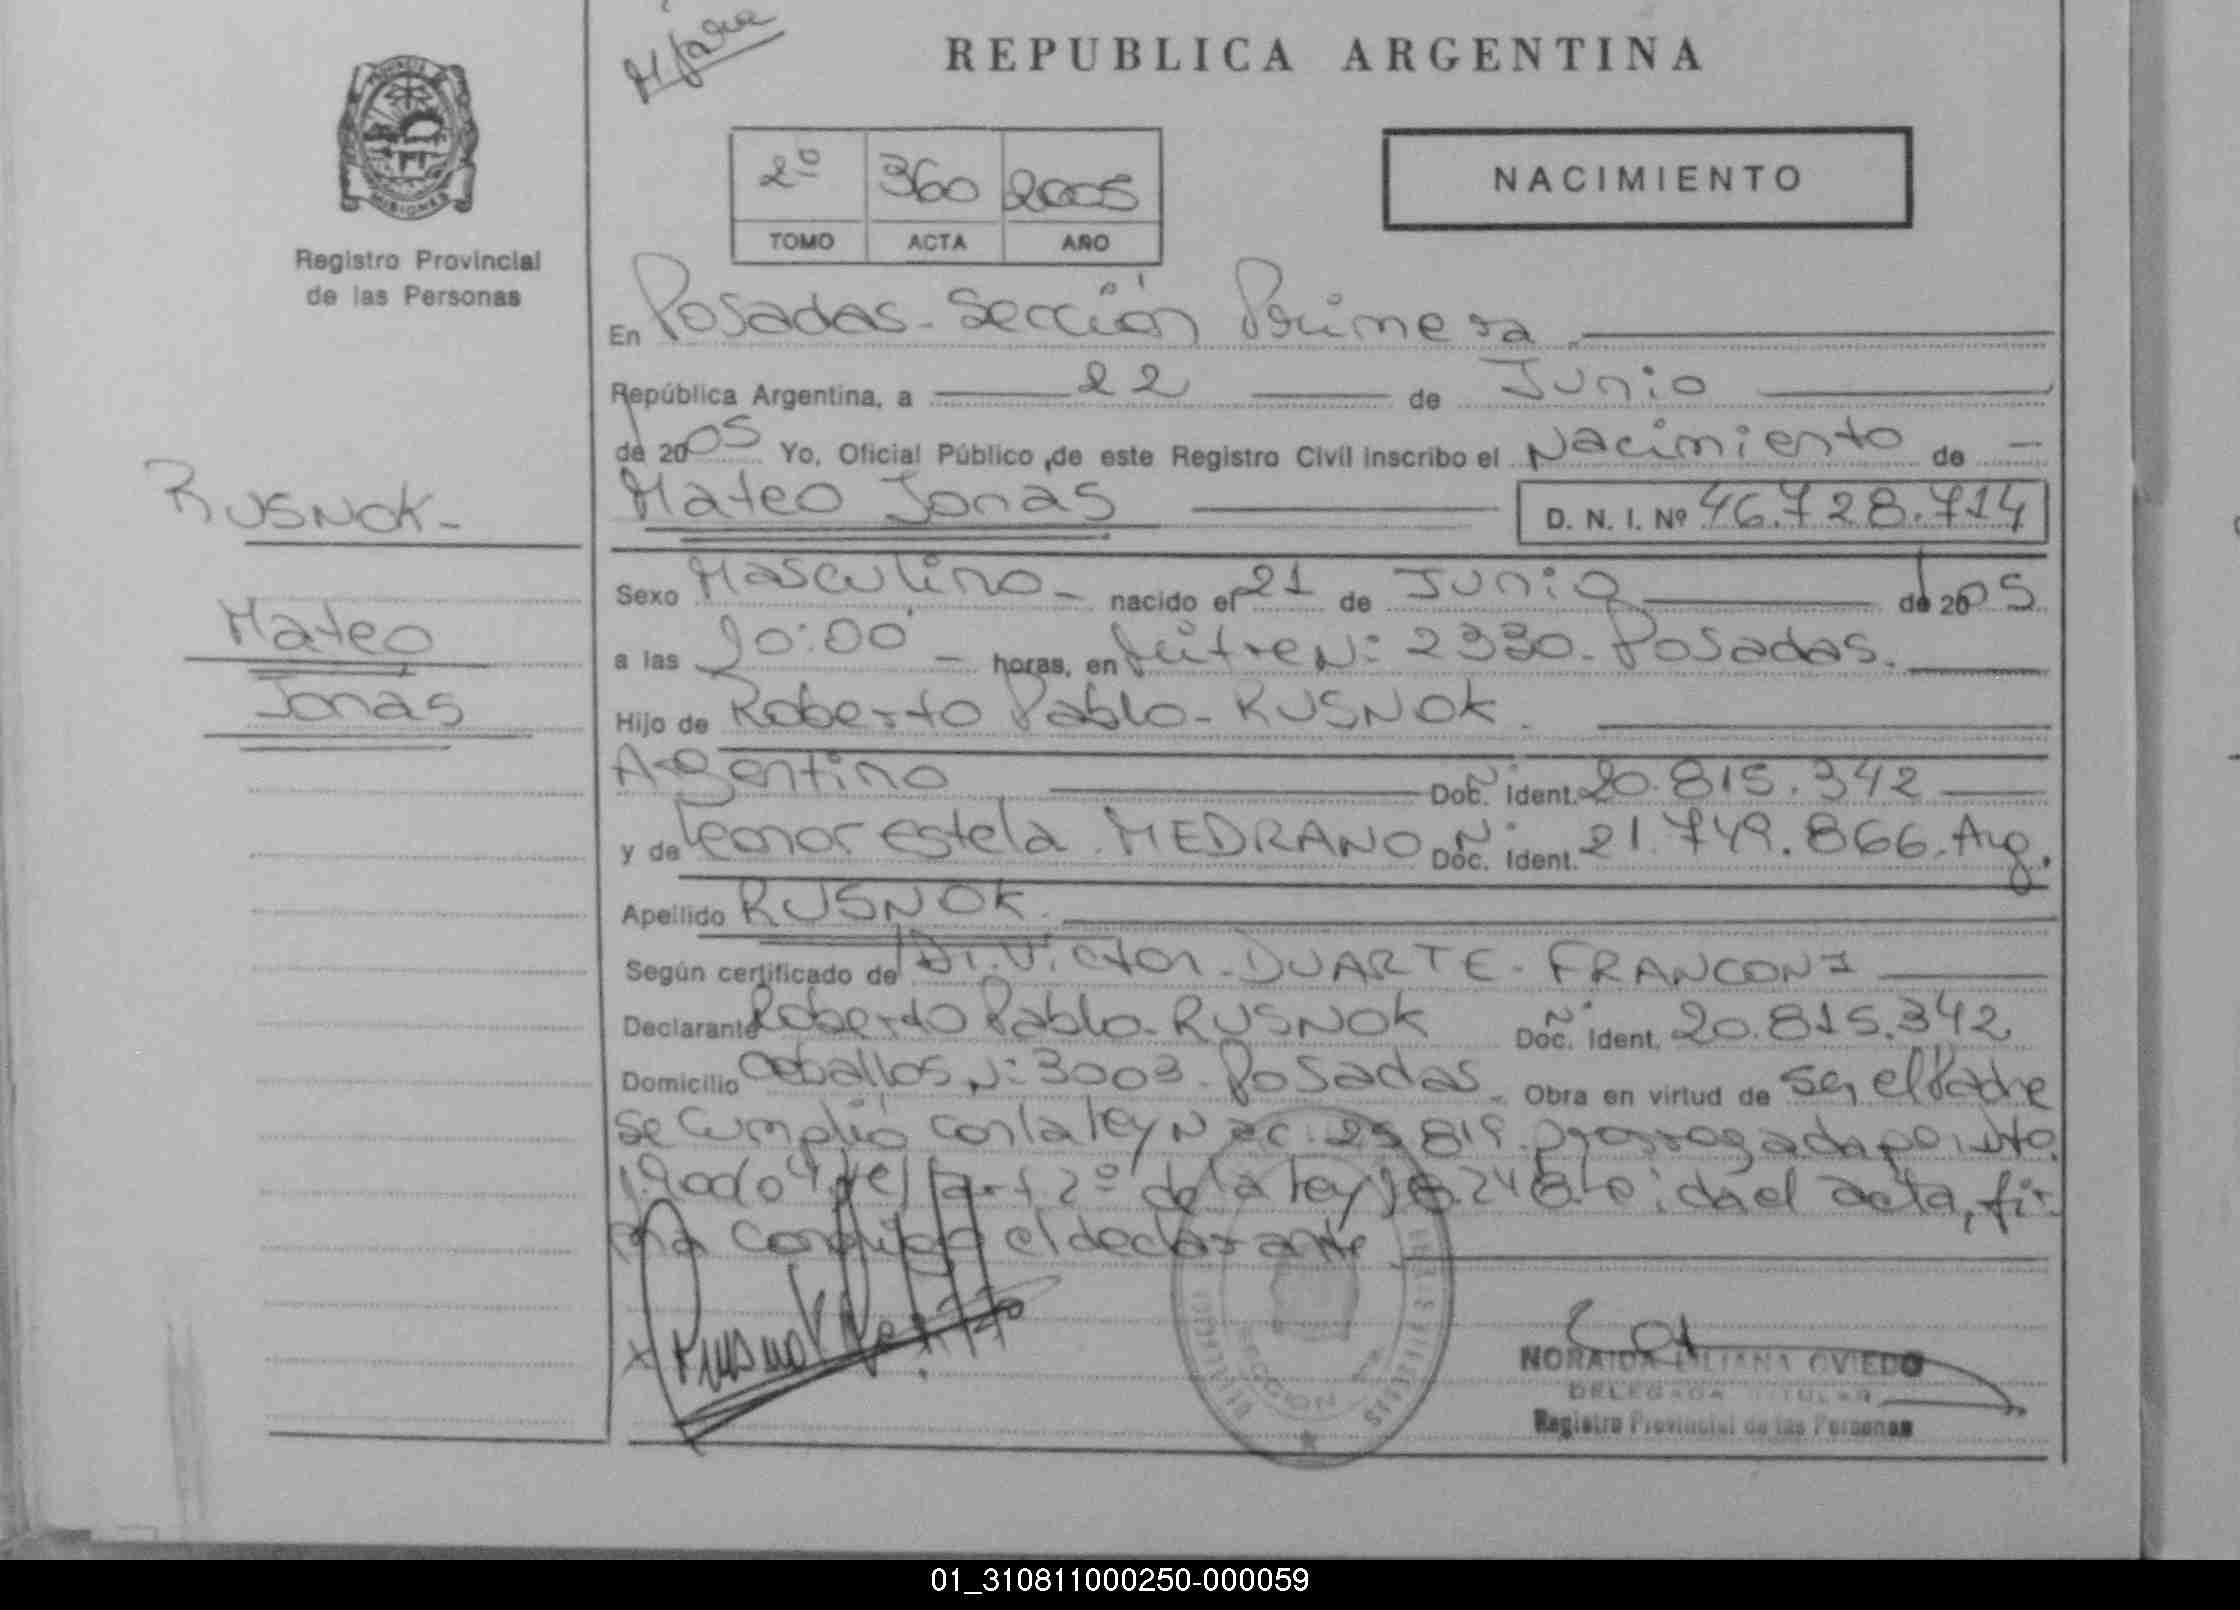 REPUBLICA ARGENTINA
PROVINCIA DE
MISIONES
Registro Provincial
de las Personas
2º 360 2005
TOMO ACTA AÑO
NACIMIENTO
En Posadas - Sección Primera
República Argentina, a 22 de Junio
de 2005 Yo, Oficial Público de este Registro Civil inscribo el Nacimiento de -
Mateo Jonás D. N. I. Nº 46.728.714
RUSNOK-
Mateo
Jonás
Sexo Masculino - nacido el 21 de Junio de 2005
a las 20:00 - horas, en Mitre Nº: 2330. Posadas.
Hijo de Roberto Pablo - RUSNOK.
Argentino Doc. Nº Ident. 20.815.342
y de Leonor estela MEDRANO Doc. Nº Ident. 21.749.866. Arg.
Apellido RUSNOK.
Según certificado de Dr. Victor - DUARTE - FRANCONI
Declarante Roberto Pablo - RUSNOK Doc. Nº Ident. 20.815.342
Domicilio Ceballos Nº: 3003 - Posadas - Obra en virtud de ser el Padre
se cumplió con la ley Nac. 25.819. prorrogada por
del art 2º de la ley 18.248. Leida el acta, fir-
ma conmigo el declarante
Rusnok Roberto
SECCION
NORAIDA LILIANA OVIEDO
DELEGADA TITULAR
Registro Provincial de las Personas
01_310811000250-000059